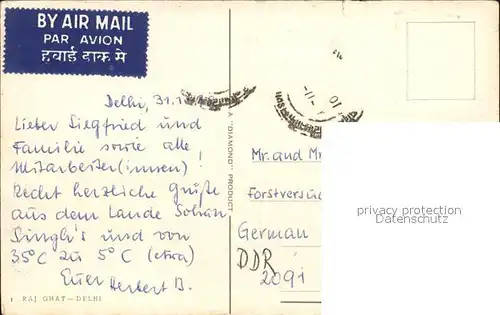 BY AIR MAIL
PAR AVION
हवाई डाक से
Delhi, 31.1
Lieber Siegfried und
Familie sowie alle
Mitarbeiter(innen)!
Recht herzliche Grüße
aus dem Lande Sohan
Singh's und von
35°C zu 5°C (etwa)
Euer Herbert B.
1 RAJ GHAT—DELHI
A "DIAMOND" PRODUCT
Mr. and Mr
Forstversuc
German
DDR
2091
privacy protection
Datenschutz